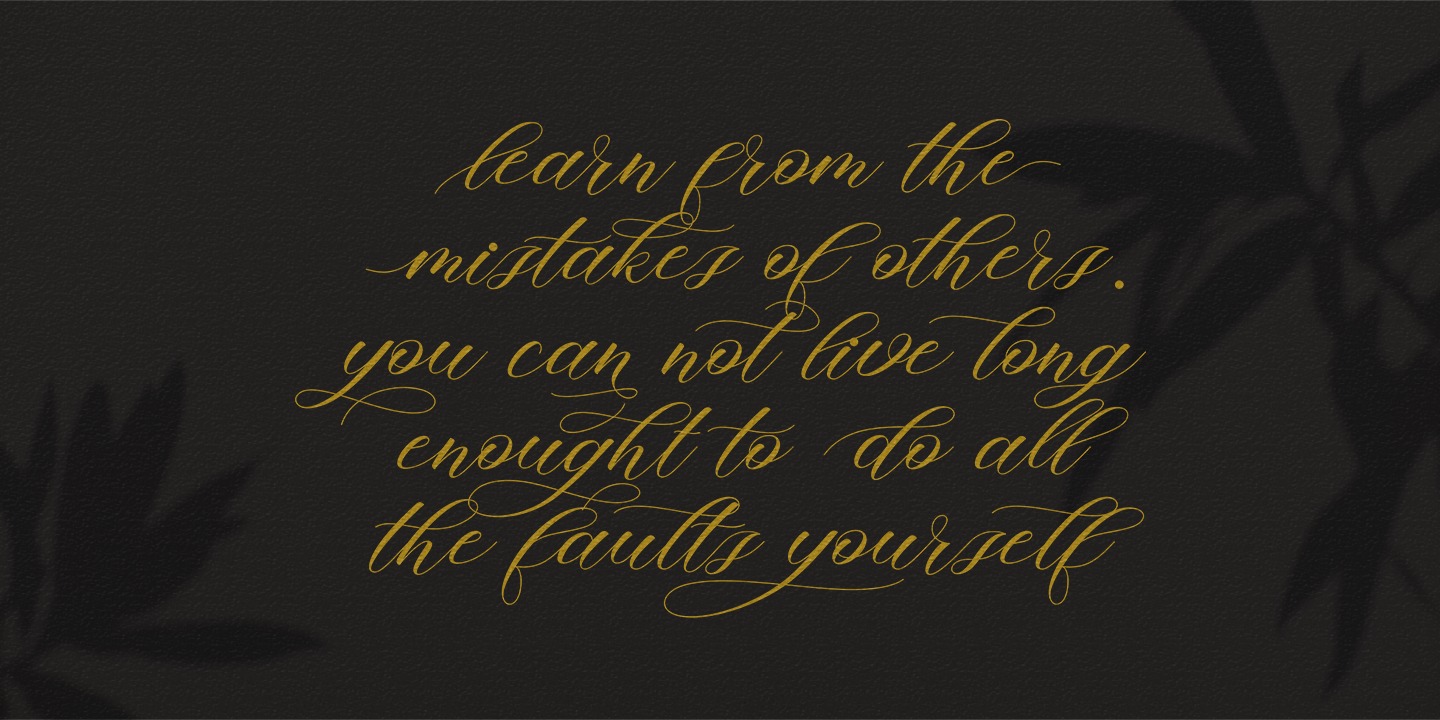 learn from the
mistakes of others.
you can not live long
enought to do all
the faults yourself